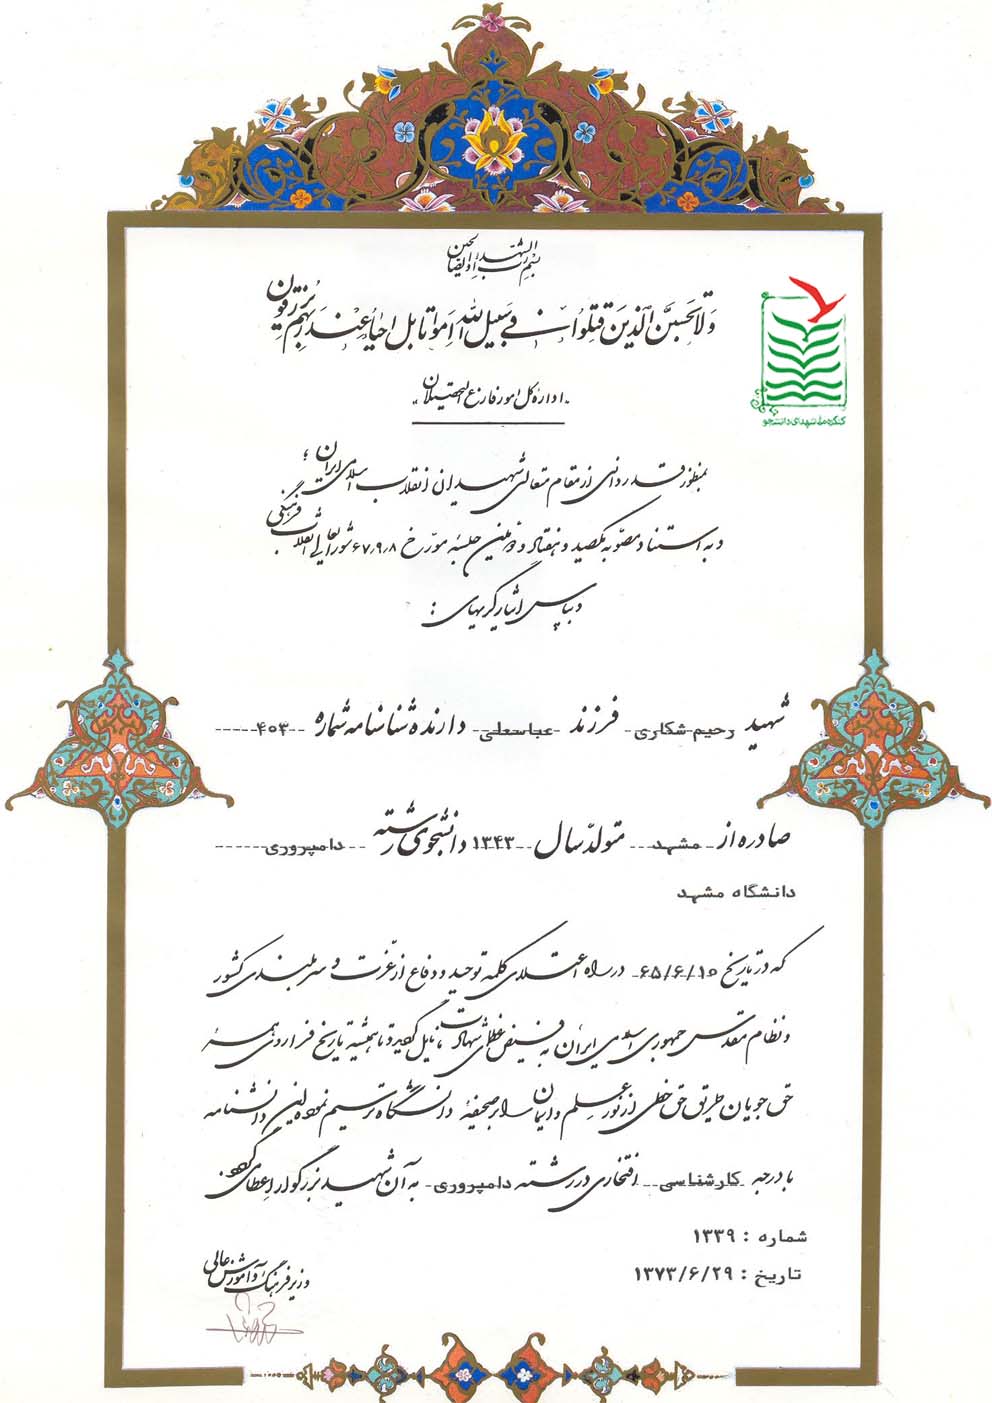 بسم رب الشهداء و الصالحین
وَلا تَحسَبَنَّ الَّذینَ قُتِلوا فی سَبیلِ اللهِ اَمواتا بَل اَحیاءٌ عِندَ رَبِّهِم یُرزَقون
کنگره ملی شهدای دانشجو
«اداره کل امور فارغ التحصیلان»
بمنظور قدردانی از مقام متعالی شهیدان انقلاب اسلامی ایران ؛
و به استناد مصوبه یکصد و هفتاد و دومین جلسه مورخ ۶۷٫۹٫۸ شورایعالی انقلاب فرهنگی
و بپاس ایثارگریهای :
شهید رحیم شکاری فرزند عباسعلی دارنده شناسنامه شماره ۴۰۳
صادره از مشهد متولد سال ۱۳۴۳ دانشجوی رشته دامپروری
دانشگاه مشهد
که در تاریخ ۶۵/۶/۱۰ در راه اعتلای کلمه توحید و دفاع از عزت و سربلندی کشور
و نظام مقدس جمهوری اسلامی ایران به فیض عظمای شهادت نایل گردید و تا همیشه تاریخ فرا روی همه
حق جویان طریق حق خطی از نور علم و ایمان را بر صحیفه دانشگاه ترسیم نمود، این دانشنامه
با درجه کارشناسی افتخاری در رشته دامپروری به آن شهید بزرگوار اعطا می گردد.
شماره : ۱۳۳۹
تاریخ : ۱۳۷۳/۶/۲۹
وزیر فرهنگ و آموزش عالی